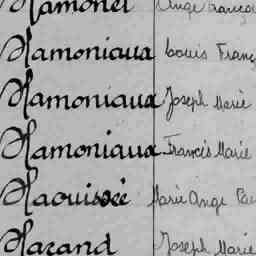 Hamonet Ange
Hamoniaux Louis Franç
Hamoniaux Joseph Marie
Hamoniaux Francis Marie
Marie Ange
Harand Joseph Marie